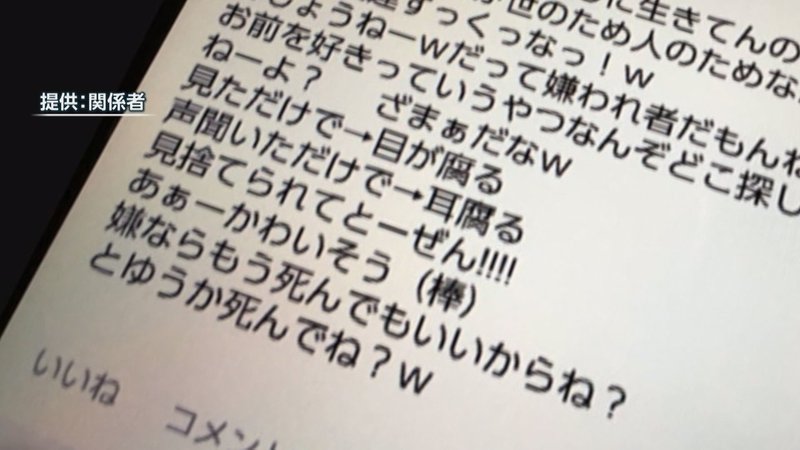 提供:関係者
に生きてんの
世のため人のためな
ずっくっなっ!w
しょうねーwだって嫌われ者だもんね
お前を好きっていうやつなんぞどこ探し
ねーよ? ざまぁだなw
見ただけで→目が腐る
声聞いただけで→耳腐る
見捨てられてとーぜん!!!!
あぁーかわいそう(棒)
嫌ならもう死んでもいいからね?
とゆうか死んでね?w
いいね コメン